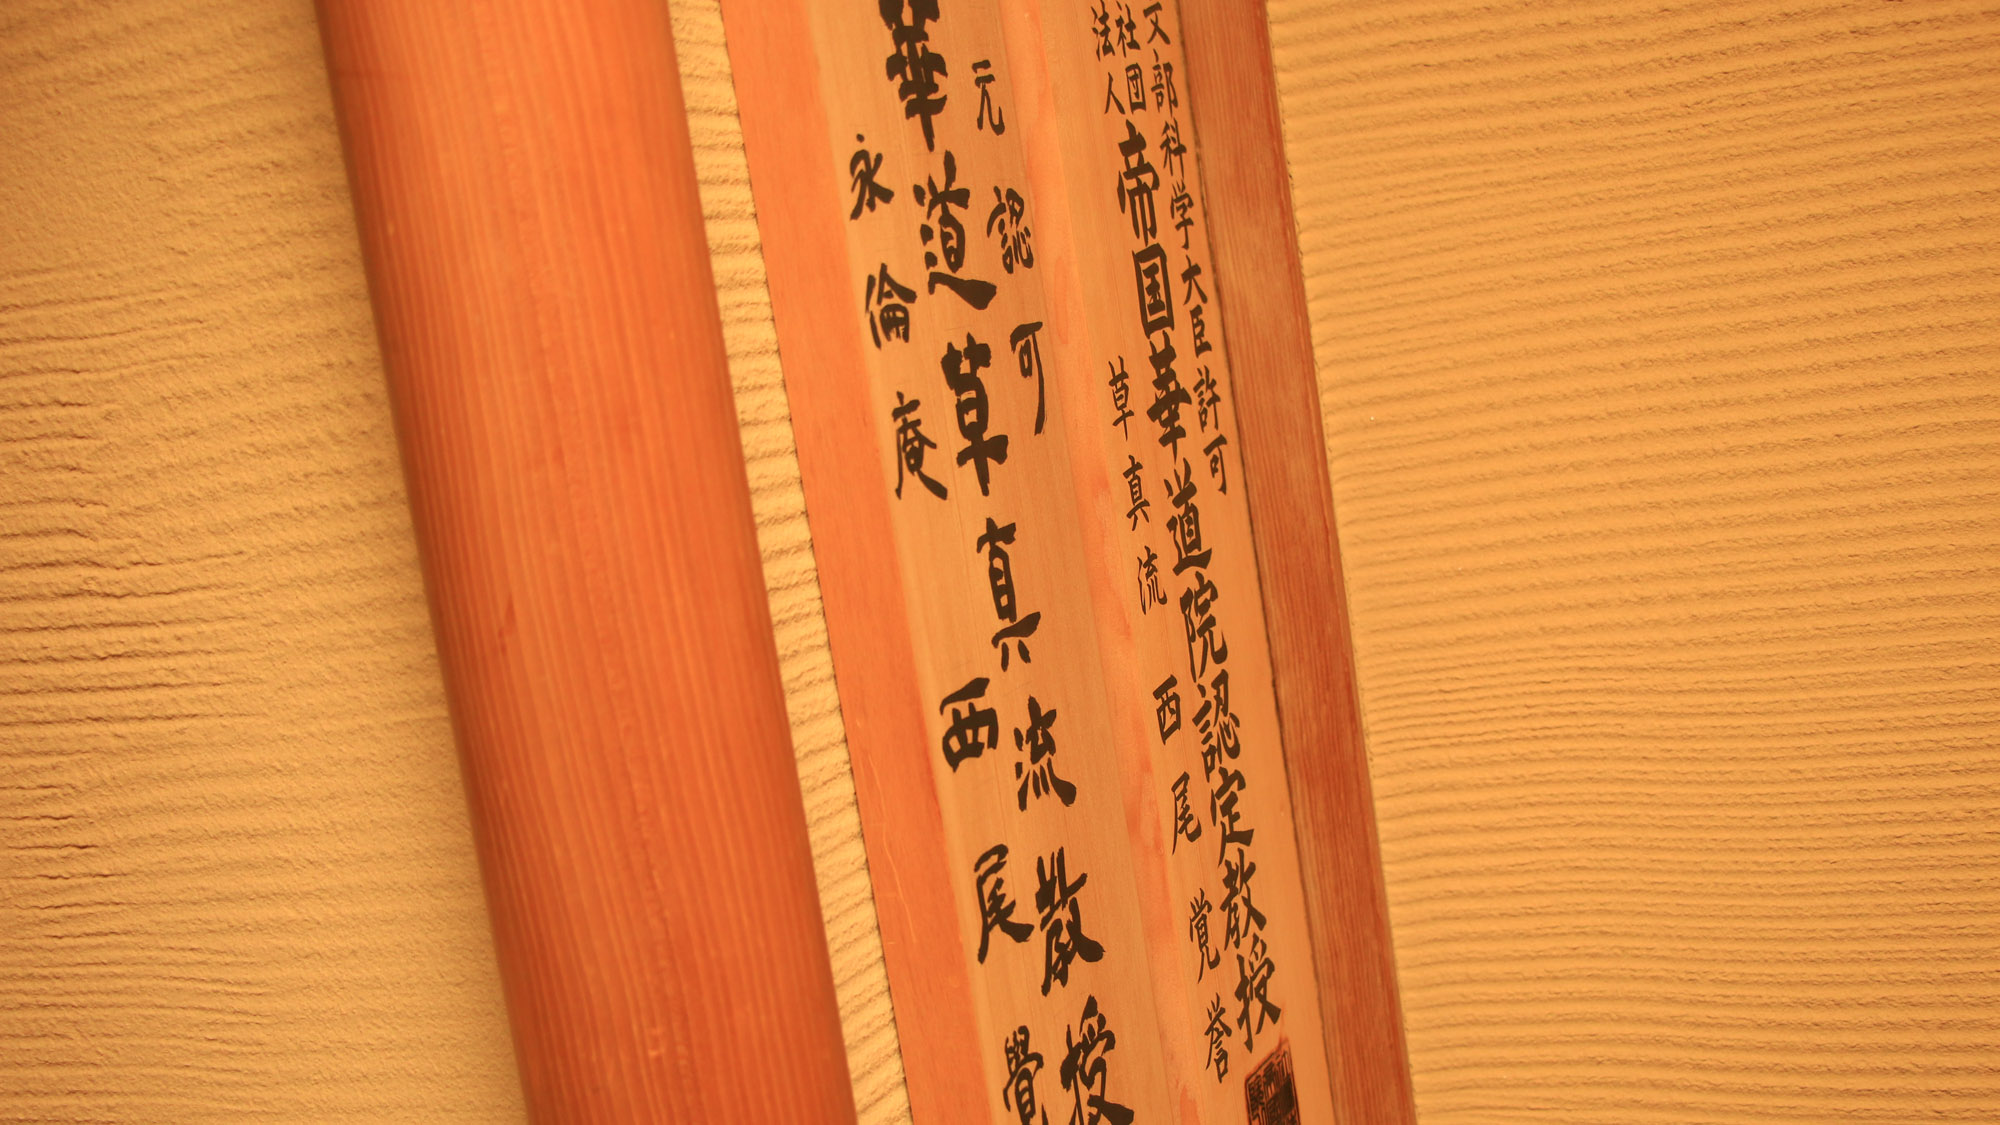 文部科学大臣許可
社団
法人
帝国華道院認定教授
草真流 西尾覚誉
元認可
華道草真流教授
永倫庵 西尾覺